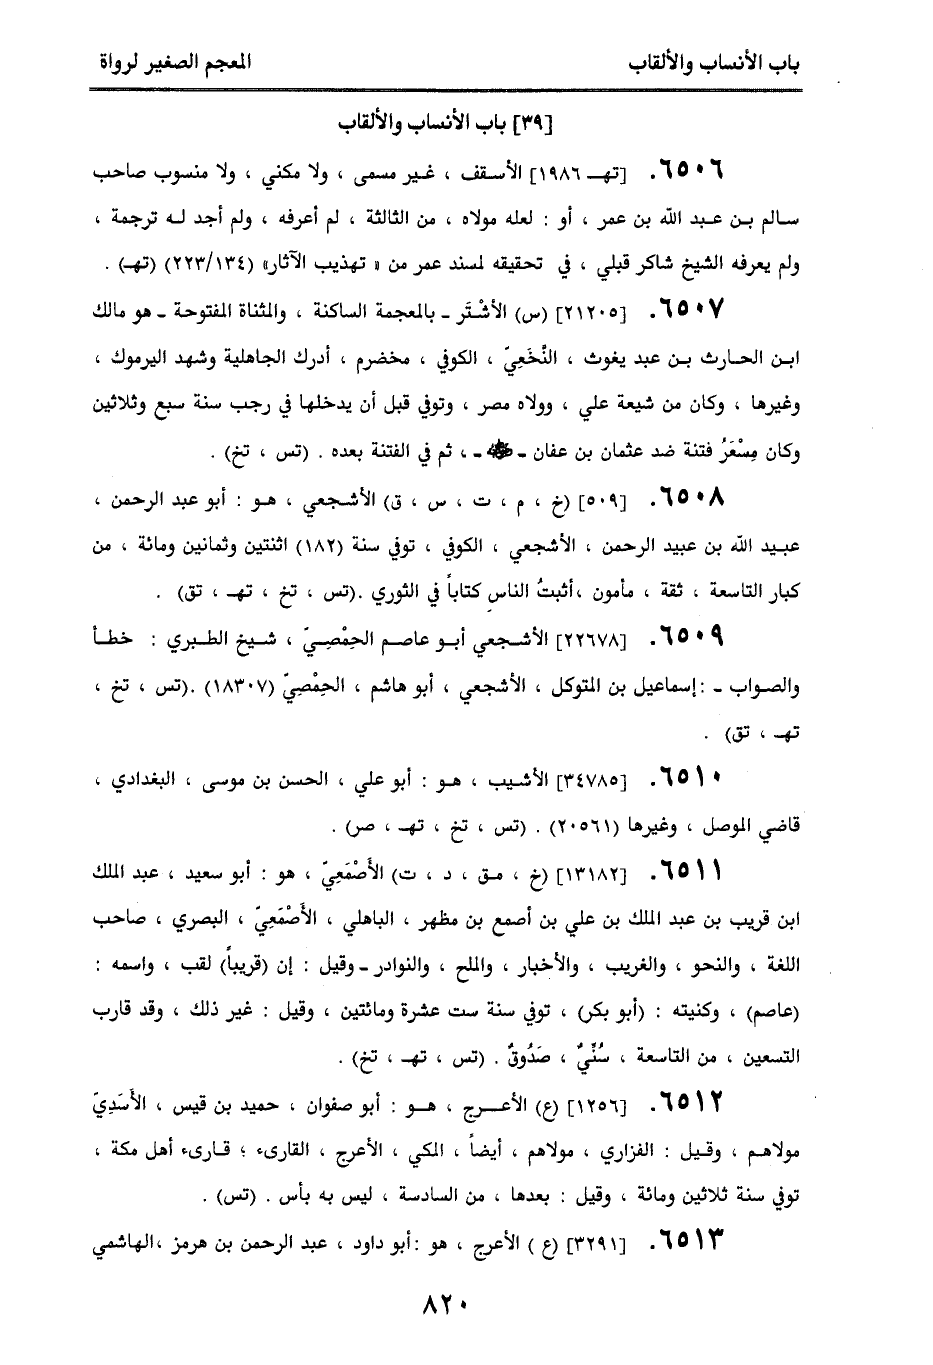 باب الأنساب والألقاب
المعجم الصغير لرواة
[٣٩] باب الأنساب والألقاب
٦٥٠٦. [تهـ ١٩٨٦] الأسقف ، غير مسمى ، ولا مكني ، ولا منسوب صاحب
سالم بن عبد الله بن عمر ، أو : لعله مولاه ، من الثالثة ، لم أعرفه ، ولم أجد له ترجمة ،
ولم يعرفه الشيخ شاكر قبلي ، في تحقيقه لمسند عمر من « تهذيب الآثار» (٢٢٣/١٣٤) (تهـ) .
٦٥٠٧. [٢١٢٠٥] (س) الأشْتَر ـ بالمعجمة الساكنة ، والمثناة المفتوحة ـ هو مالك
ابن الحارث بن عبد يغوث ، النَّخَعِيّ ، الكوفي ، مخضرم ، أدرك الجاهلية وشهد اليرموك ،
وغيرها ، وكان من شيعة علي ، وولاه مصر ، وتوفي قبل أن يدخلها في رجب سنة سبع وثلاثين
وكان مِسْعَرُ فتنة ضد عثمان بن عفان ـ ـ ، ثم في الفتنة بعده . (تس ، تخ) .
٦٥٠٨. [٥٠٩] (خ ، م ، ت ، س ، ق) الأشجعي ، هو : أبو عبد الرحمن ،
عبيد الله بن عبيد الرحمن ، الأشجعي ، الكوفي ، توفي سنة (١٨٢) اثنتين وثمانين ومائة ، من
كبار التاسعة ، ثقة ، مأمون ،أثبتُ الناس كتاباً في الثوري .(تس ، تخ ، تهـ ، تق) .
٦٥٠٩. [٢٢٦٧٨] الأشجعي أبو عاصم الحِمْصِيّ ، شيخ الطبري : خطأ
والصواب ـ :إسماعيل بن المتوكل ، الأشجعي ، أبو هاشم ، الحِمْصِيّ (١٨٣٠٧) .(تس ، تخ ،
تهـ ، تق) .
٦٥١٠. [٣٤٧٨٥] الأشيب ، هو : أبو علي ، الحسن بن موسى ، البغدادي ،
قاضي الموصل ، وغيرها (٢٠٥٦١) . (تس ، تخ ، تهـ ، صر) .
٦٥١١. [١٣١٨٢] (خ ، مق ، د ، ت) الأَصْمَعِيّ ، هو : أبو سعيد ، عبد الملك
ابن قريب بن عبد الملك بن علي بن أصمع بن مظهر ، الباهلي ، الأَصْمَعِيّ ، البصري ، صاحب
اللغة ، والنحو ، والغريب ، والأخبار ، والملح ، والنوادر ـ وقيل : إن (قريباً) لقب ، واسمه :
(عاصم) ، وكنيته : (أبو بكر) ، توفي سنة ست عشرة ومائتين ، وقيل : غير ذلك ، وقد قارب
التسعين ، من التاسعة ، سُنِّيٌّ ، صَدُوقٌ . (تس ، تهـ ، تخ) .
٦٥١٢. [١٢٥٦] (ع) الأعرج ، هو : أبو صفوان ، حميد بن قيس ، الأَسَدِيّ
مولاهم ، وقيل : الفزاري ، مولاهم ، أيضاً ، المكي ، الأعرج ، القارىء ؛ قارىء أهل مكة ،
توفي سنة ثلاثين ومائة ، وقيل : بعدها ، من السادسة ، ليس به بأس . (تس) .
٦٥١٣. [٣٢٩١] (ع ) الأعرج ، هو :أبو داود ، عبد الرحمن بن هرمز ،الهاشمي
٨٢٠